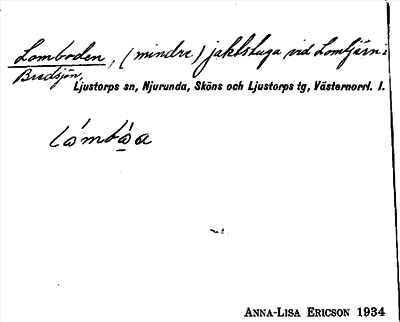 Lomboden, (mindre) jaktstuga vid Lomtjärn:
Bredsjön,
Ljustorps sn, Njurunda, Sköns och Ljustorps tg, Västernorrl. l.
ANNA-LISA ERICSON 1934